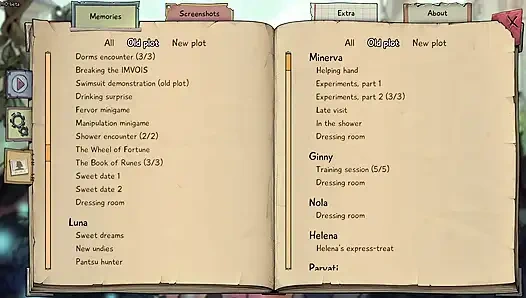 beta
Memories
Screenshots
Extra
About
All Old plot New plot
Dorms encounter (3/3)
Breaking the IMVOIS
Swimsuit demonstration (old plot)
Drinking surprise
Fervor minigame
Manipulation minigame
Shower encounter (2/2)
The Wheel of Fortune
The Book of Runes (3/3)
Sweet date 1
Sweet date 2
Dressing room
Luna
Sweet dreams
New undies
Pantsu hunter
All Old plot New plot
Minerva
Helping hand
Experiments, part 1
Experiments, part 2 (3/3)
Late visit
In the shower
Dressing room
Ginny
Training session (5/5)
Dressing room
Nola
Dressing room
Helena
Helena's express-treat
Parvati